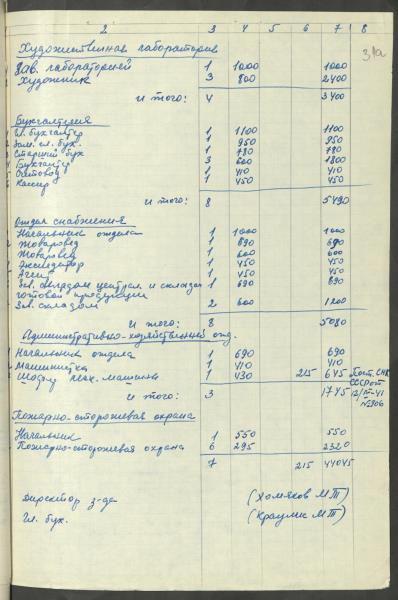 2 3 4 5 6 7 8
31а
Художественная лаборатория
Зав. лабораторией 1 1000 1000
Художник 3 800 2400
итого: 4 3400
Бухгалтерия
Гл. бухгалтер 1 1100 1100
Зам. гл. бух. 1 950 950
Старший бух 1 780 780
Бухгалтер 3 600 1800
Счетовод 1 410 410
Кассир 1 450 450
итого: 8 5490
Отдел снабжения
Начальник отдела 1 1000 1000
Товаровед 1 690 690
Товаровед 1 600 600
Экспедитор 1 450 450
Агент 1 450 450
Зав. складом централ. и складом 1 690 690
готовой продукции
Зав. складом 2 600 1200
итого: 8 5080
Административно-хозяйственный отд.
Начальник отдела 1 690 690
Машинистка 1 410 410
Шофер легк. машины 1 430 215 645 Пост. СНК
СССР от
итого: 3 1745 12/IV-41
№906
Пожарно-сторожевая охрана
Начальник 1 550 550
Пожарно-сторожевая охрана 6 295 2320
7 215 44045
Директор з-да (Хомяков МП)
Гл. бух. (Краулис МП)